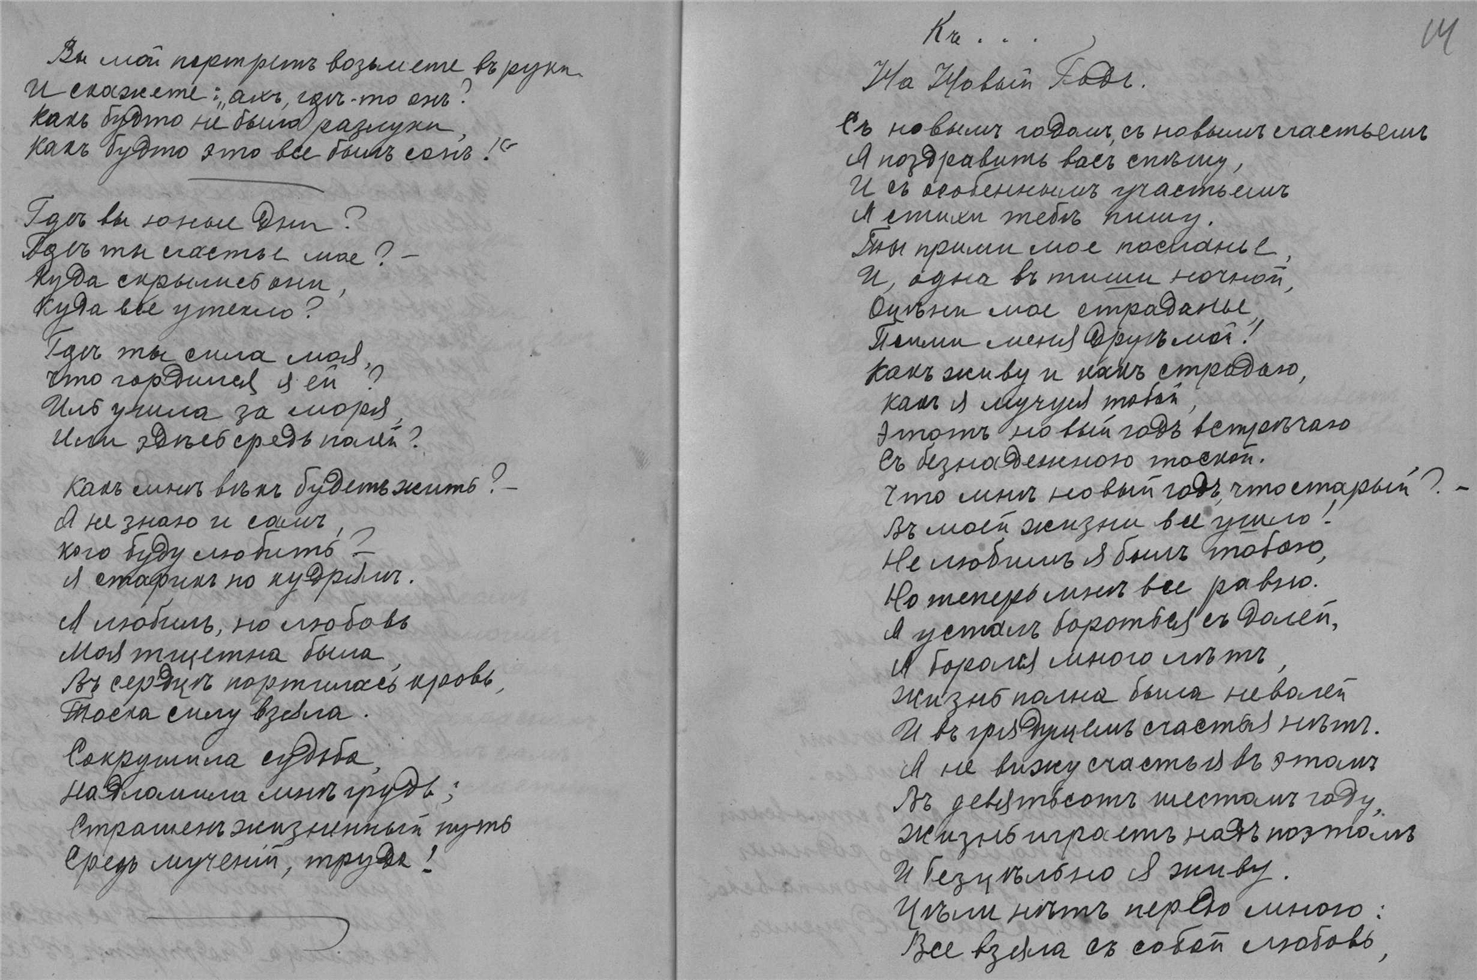 Вы мой портретъ возьмете въ руки
И скажете: „ахъ, гдѣ-то онъ?
Какъ будто не была разлуки,
Какъ будто это все былъ сонъ!“
Гдѣ вы юные дни?
Гдѣ ты счастье мое? –
Куда скрылись они,
Куда все утекло?
Гдѣ ты сила моя,
Что гордился я ей?
Иль ушла за моря,
Или здѣсь средь полей?
Какъ мнѣ вѣкъ будетъ жить? –
Я не знаю и самъ,
Кого буду любить? –
Я старикъ по кудрямъ.
Я любилъ, но любовь
Моя тщетна была,
Въ сердцѣ портилась кровь,
Тоска силу взяла.
Сокрушила судьба,
Надломила мнѣ грудь;
Страшенъ жизненный путь
Средь мученій, труда!
14
Къ . . .
На Новый Годъ.
Съ новымъ годомъ, съ новымъ счастьемъ
Я поздравить васъ спѣшу,
И съ особеннымъ участьемъ
Я стихи тебѣ пишу.
Ты прими мое посланье,
И, одна въ тиши ночной,
Оцѣни мое страданье,
Пойми меня другъ мой!
Какъ живу и какъ страдаю,
Какъ я мучуся тобой,
Этотъ новый годъ встрѣчаю
Съ безнадежною тоской.
Что мнѣ новый годъ, что старый? –
Въ моей жизни все ушло!
Не любимъ я былъ тобою,
Но теперь мнѣ все равно.
Я усталъ бороться съ долей,
Я боролся много лѣтъ,
Жизнь полна была неволей
И въ грядущемъ счастья нѣтъ.
Я не вижу счастья въ этомъ
Въ девятьсотъ шестомъ году,
Жизнь играетъ надъ поэтомъ
И безцѣльно я живу.
Цѣли нѣтъ передо мною:
Все взяла съ собой любовь,